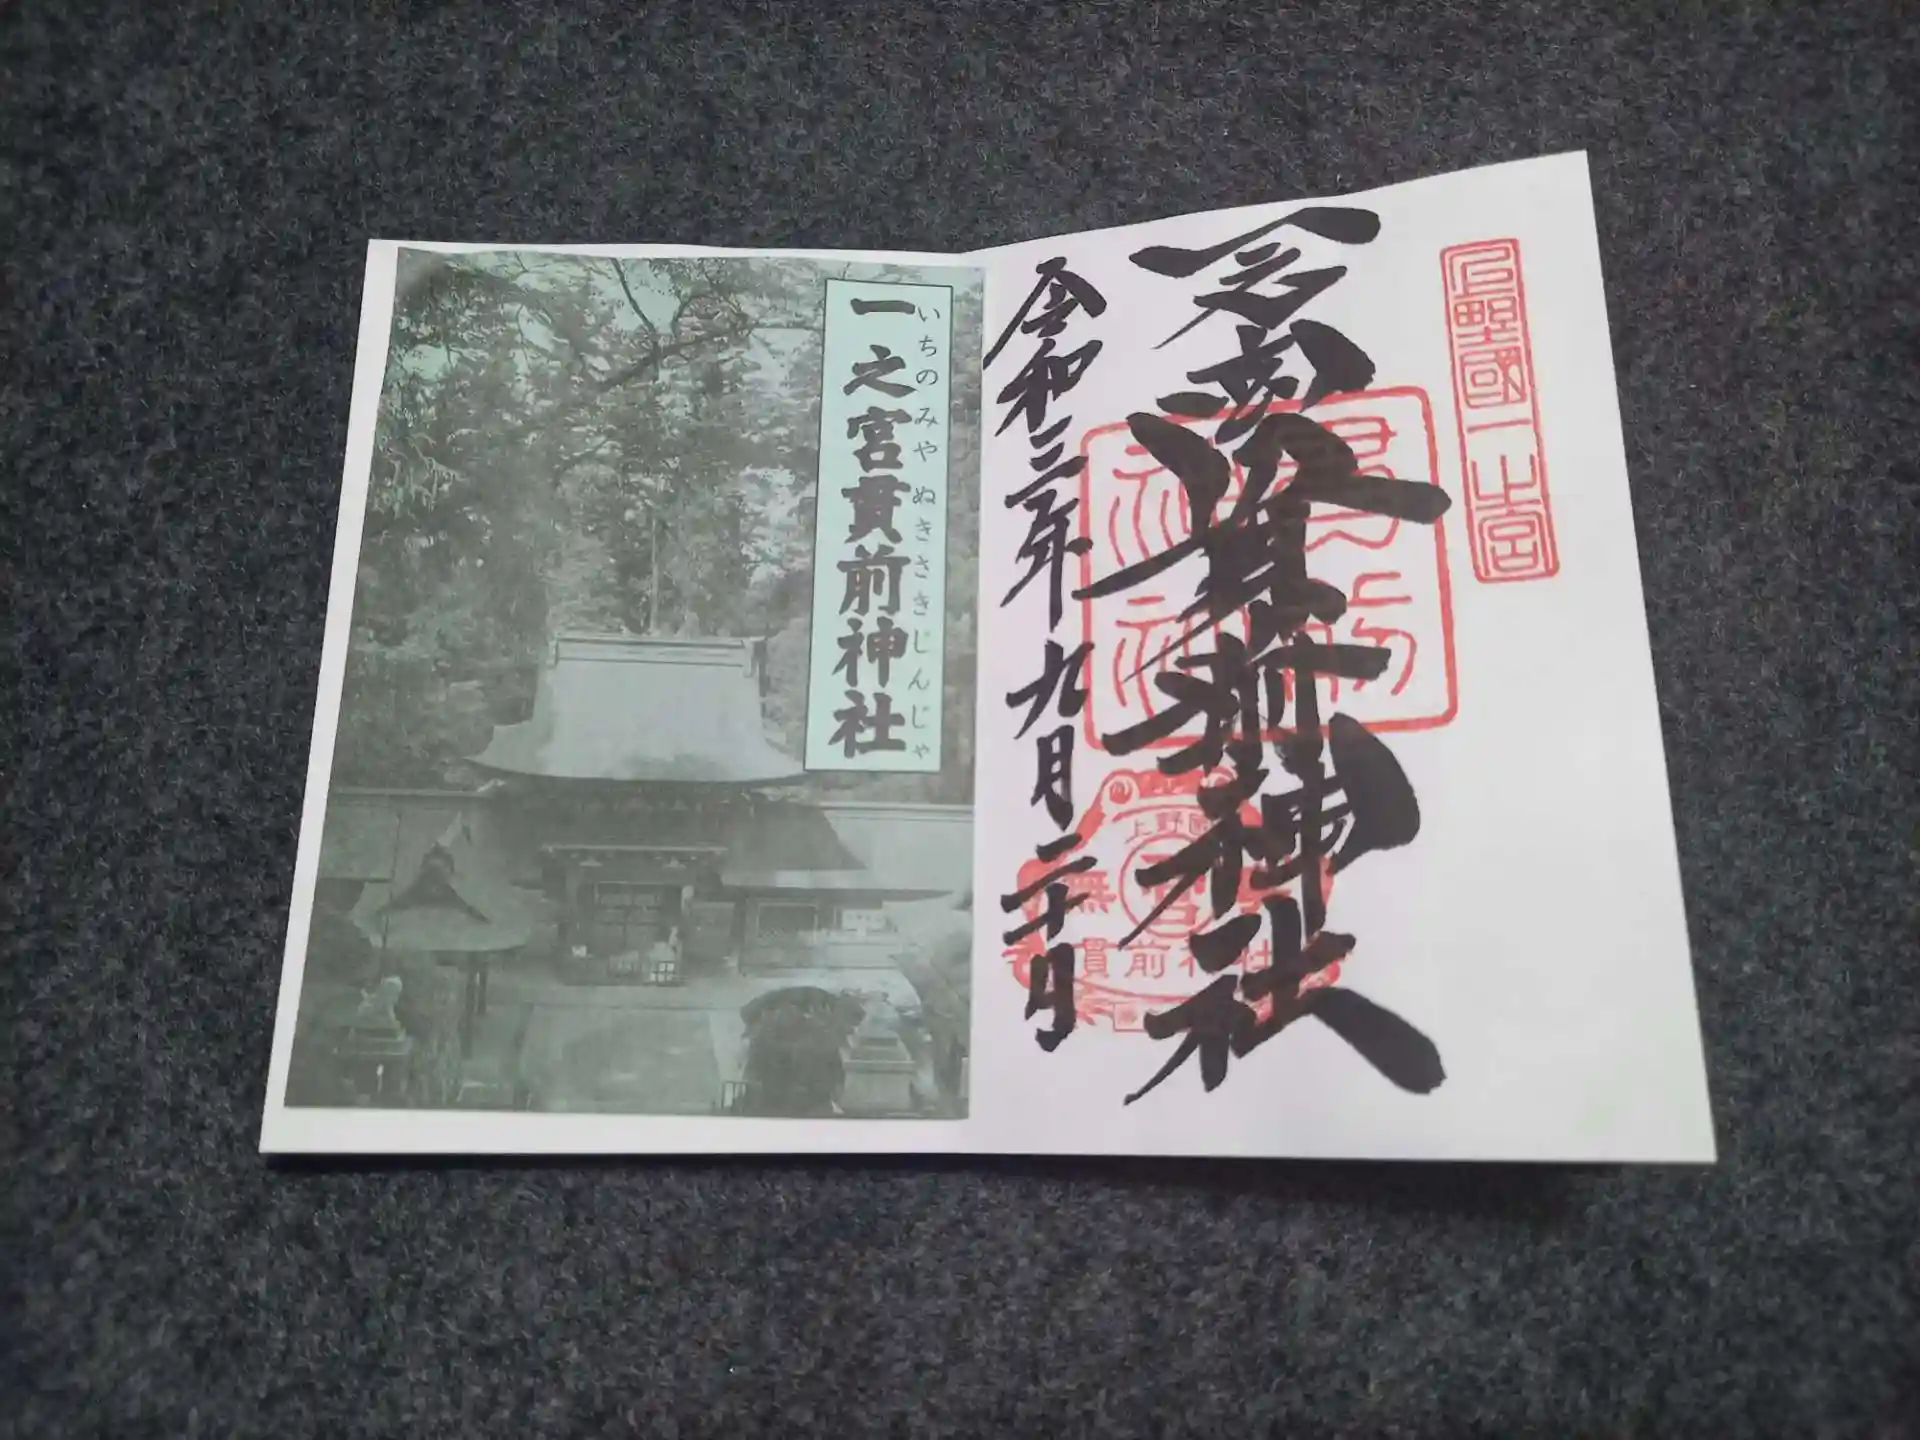 上野國一之宮
一之宮貫前神社
令和三年九月二十日
貫前神社
上野國
無
貫前神社
一之宮貫前神社
いちのみやぬきさきじんじゃ